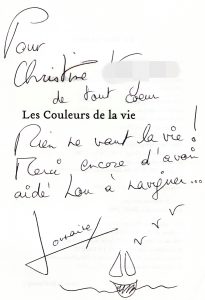 Pour
Christine
de tout coeur
Les Couleurs de la vie
Rien ne vaut la vie !
Merci encore d'avoir
aidé Lou à naviguer...
Lorraine